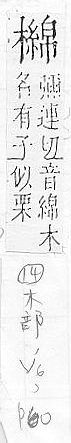 櫋
彌連切音綿木
名有子似栗
⑭木部
V6,
P60